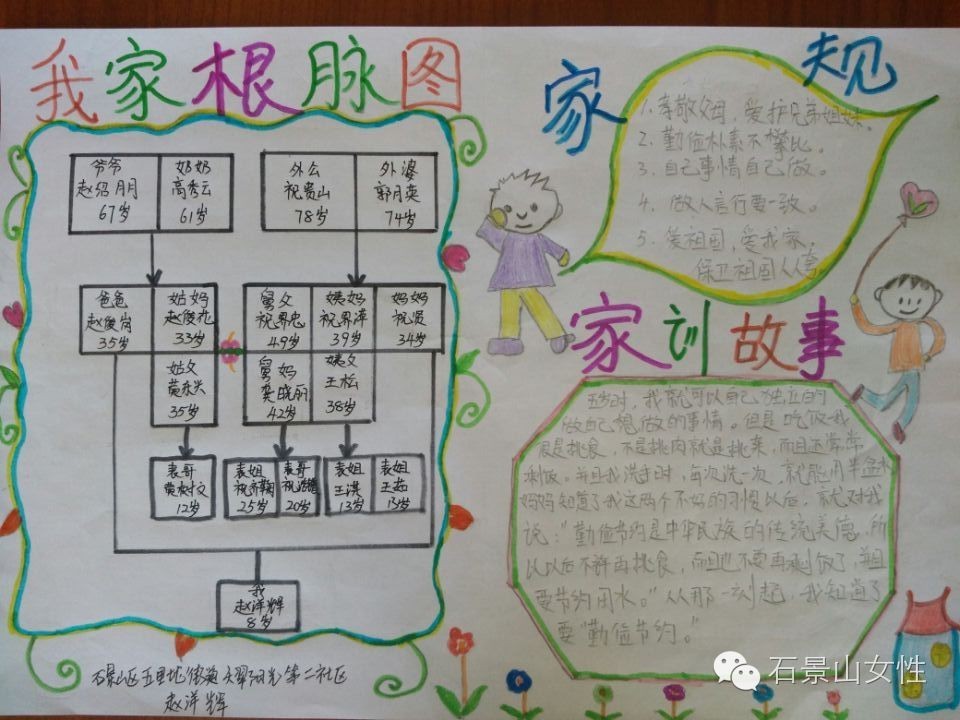 我家根脉图
爷爷
赵绍朋
67岁
奶奶
高秀云
61岁
外公
祝贵山
78岁
外婆
郭月英
74岁
爸爸
35岁
姑妈
33岁
舅父
祝界忠
49岁
姨妈
祝界萍
39岁
妈妈
祝贤
34岁
姑父
黄永兴
35岁
舅妈
龚晓丽
42岁
姨父
王松
38岁
表哥
12岁
表姐
25岁
表哥
20岁
表姐
王淇
13岁
表姐
王茹
13岁
我
赵洋辉
8岁
石景山区五里坨街道天翠阳光第二社区
赵洋辉
家规
1.孝敬父母，爱护兄弟姐妹。
2.勤俭朴素不攀比。
3.自己事情自己做。
4.做人言行要一致。
5.爱祖国，爱我家，
保卫祖国人人夸
家训故事
五岁时，我就可以自己独立的
做自己想做的事情。但是吃饭我
很是挑食，不是挑肉就是挑菜，而且还常常
剩饭。并且我洗手时，每次洗一次，就能用半盆水
妈妈知道了我这两个不好的习惯以后，就对我
说：“勤俭节约是中华民族的传统美德，所
以以后不许再挑食，而且也不要再剩饭了，并且
要节约用水。”从那一刻起，我知道了
要“勤俭节约。”
石景山女性